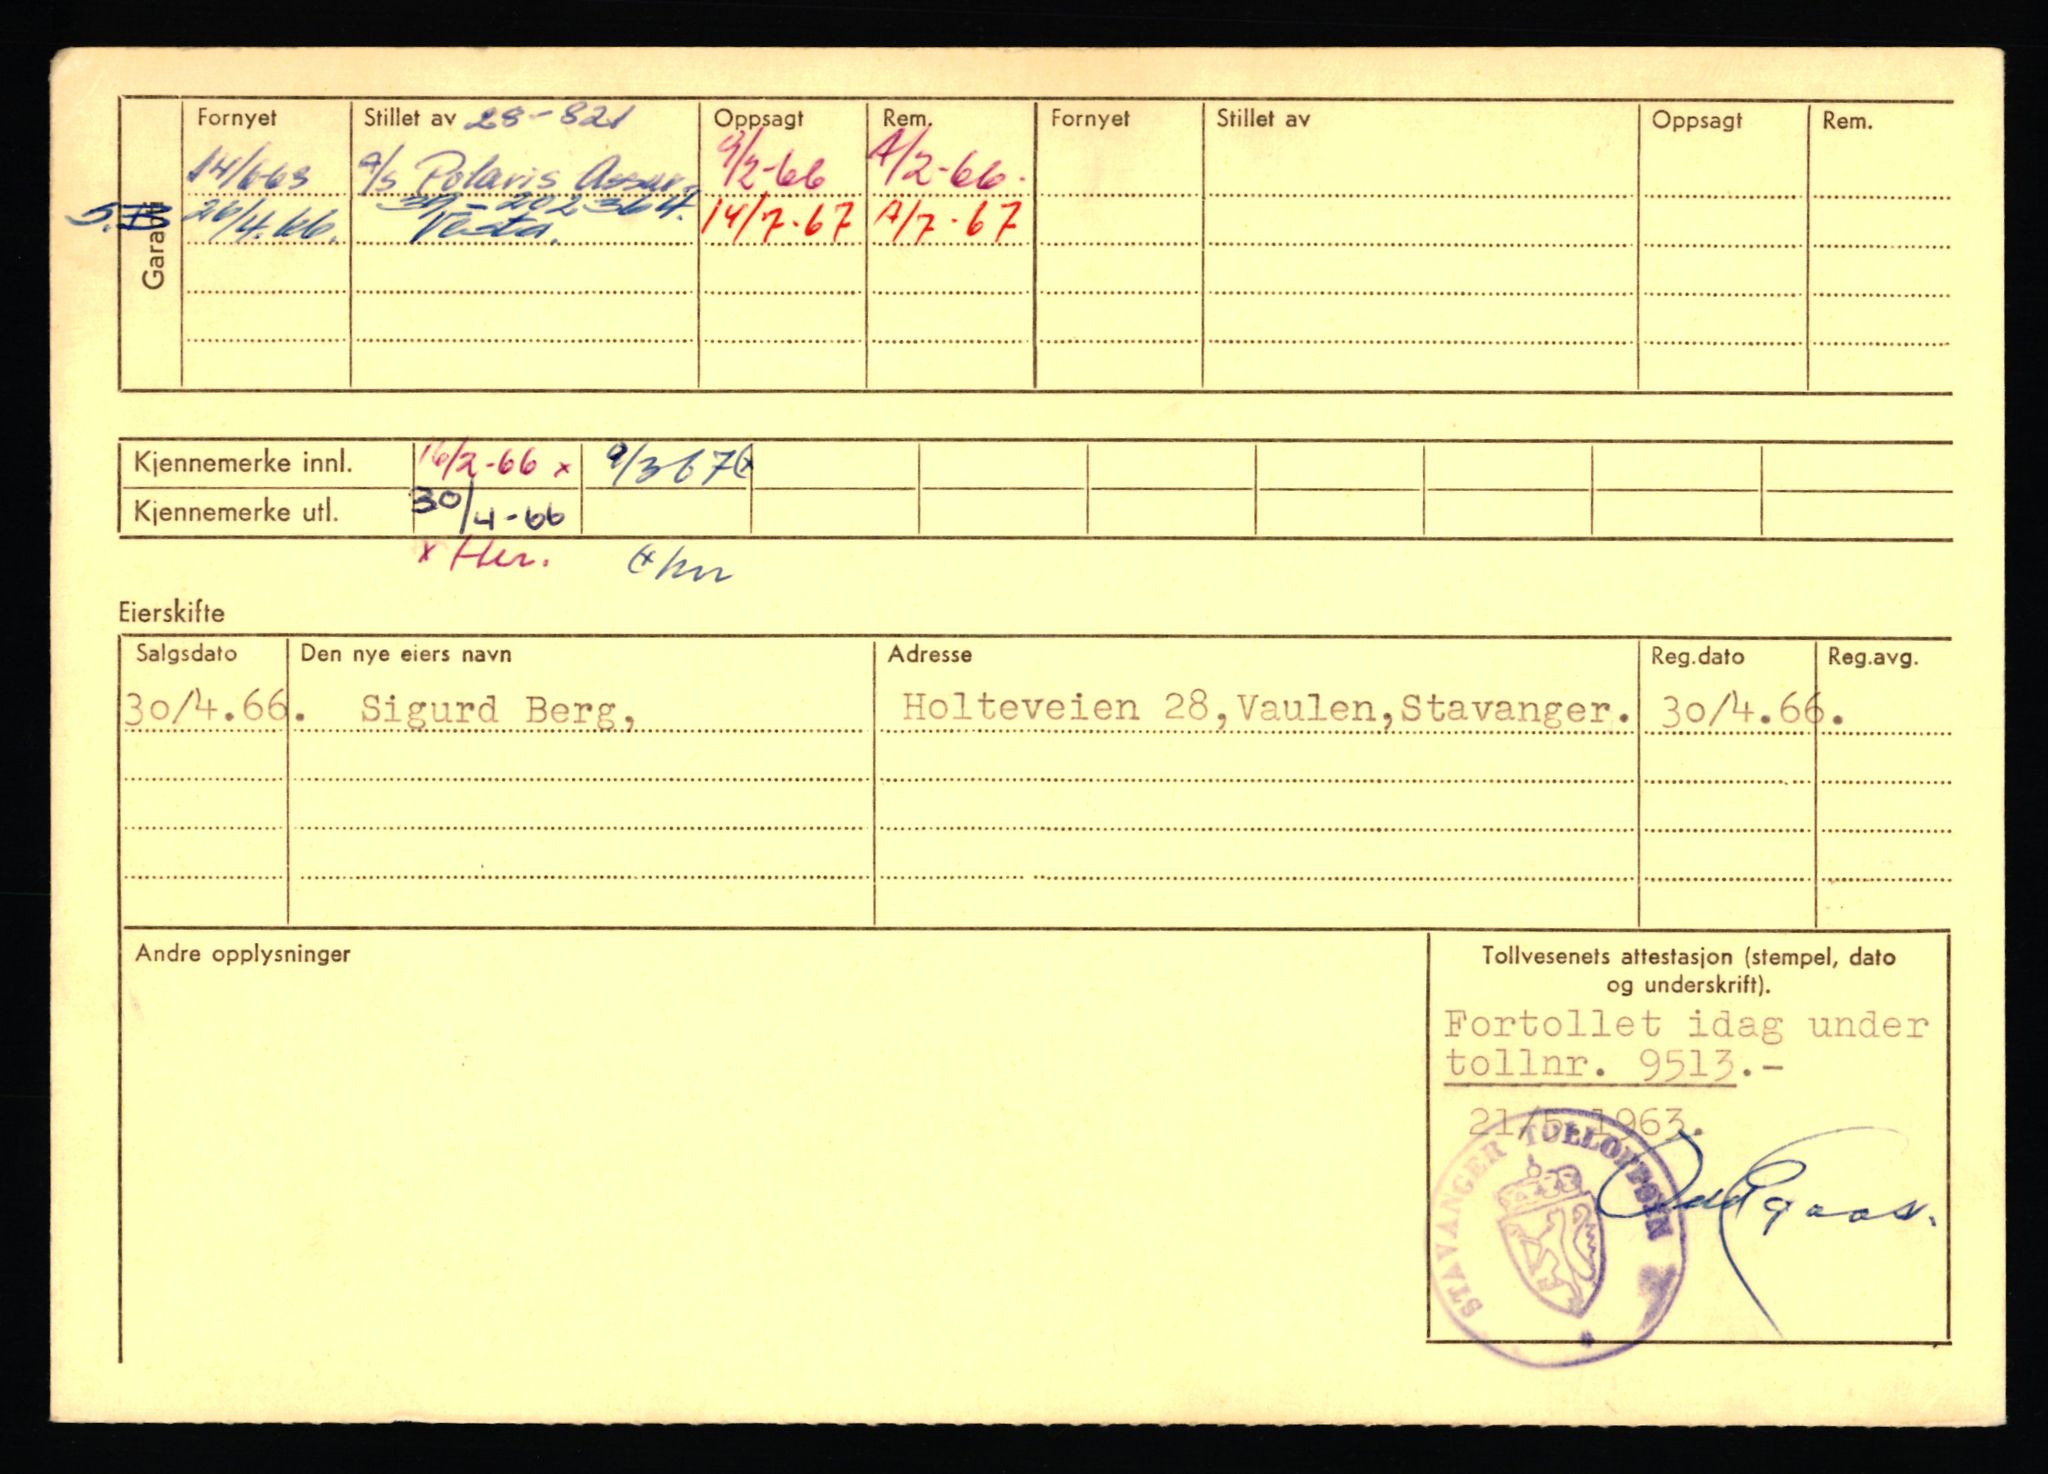 Garanti
Fornyet Stillet av 28-821 Oppsagt Rem. Fornyet Stillet av Oppsagt Rem.
14/6 63 A/S Polaris Assur. 9/2-66 A/2-66.
39-202364.
26/4.66. Vesta. 14/7-67 A/7-67
Kjennemerke innl. 16/2-66 x 9/3 67
Kjennemerke utl. 30/4-66
x Her.
Eierskifte
Salgsdato Den nye eiers navn Adresse Reg.dato Reg.avg.
30/4.66. Sigurd Berg, Holteveien 28,Vaulen,Stavanger. 30/4.66.
Andre opplysninger
Tollvesenets attestasjon (stempel, dato
og underskrift).
Fortollet idag under
tollnr. 9513.-
21/5.1963.
STAVANGER TOLLOPPSYN